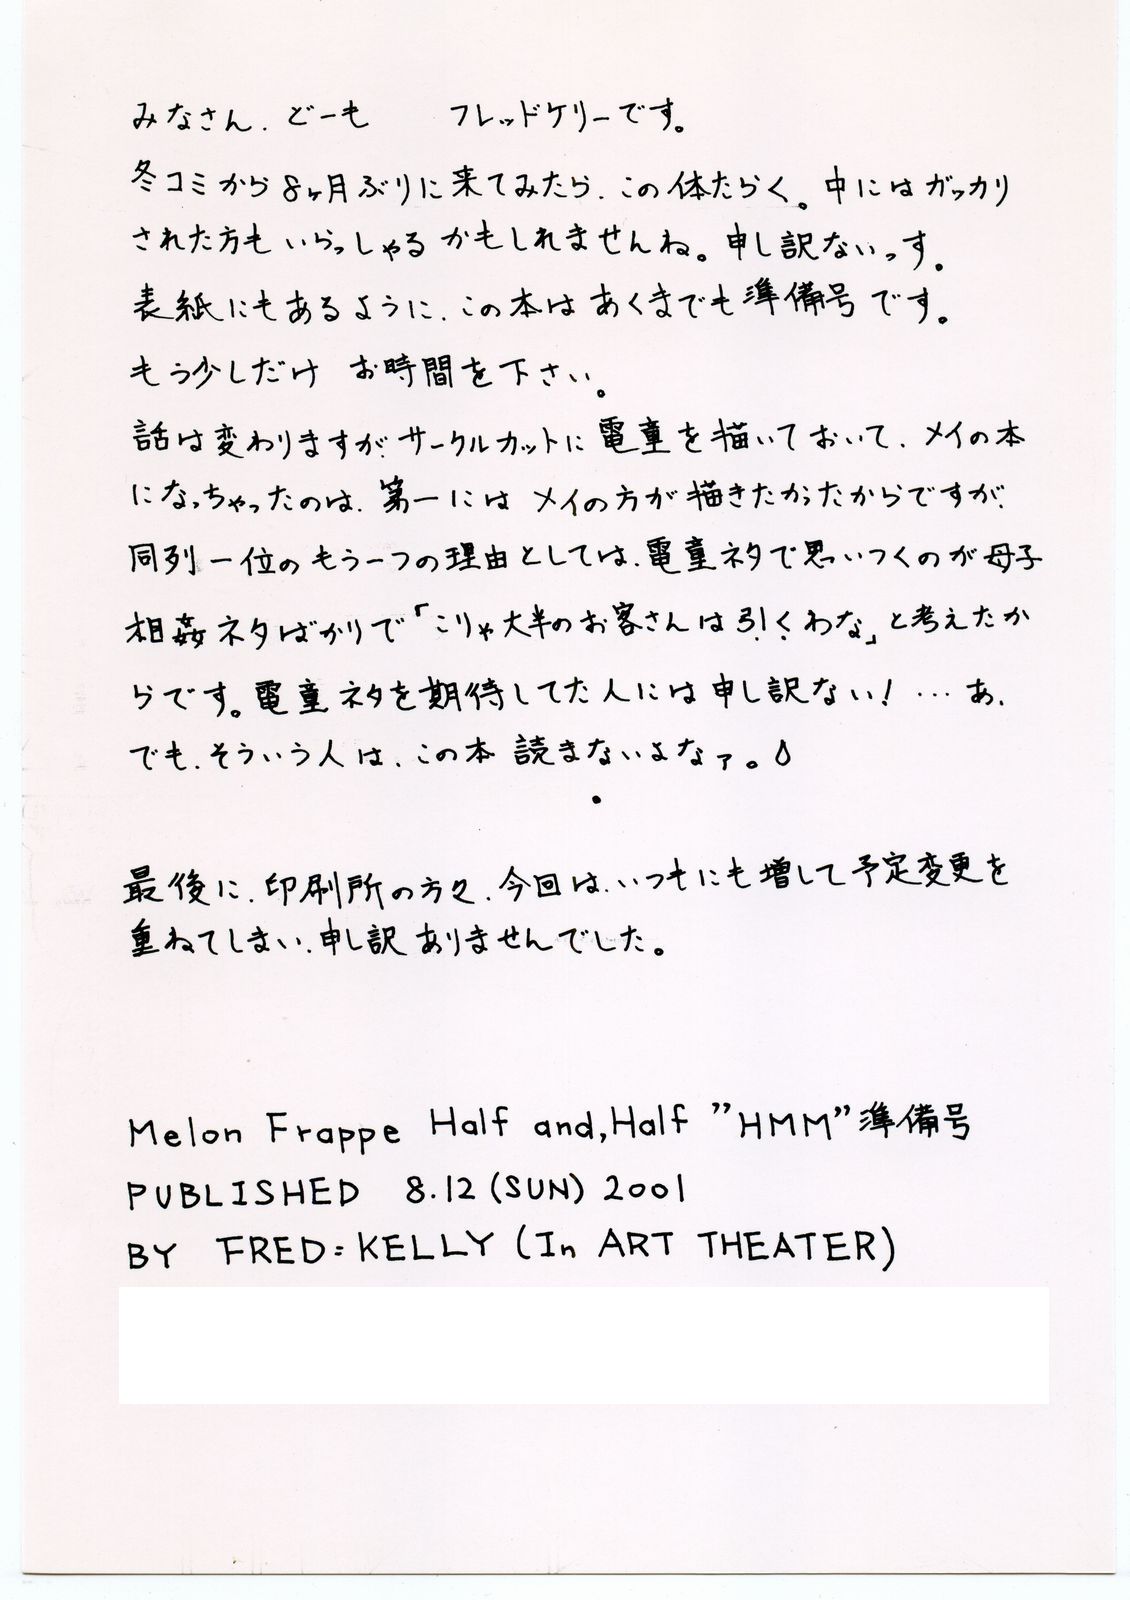 みなさん、どーも　フレッドケリーです。
冬コミから8ヶ月ぶりに来てみたら、この体たらく。中にはガッカリ
された方もいらっしゃるかもしれませんね。申し訳ないっす。
表紙にもあるように、この本はあくまでも準備号です。
もう少しだけ　お時間を下さい。
話は変わりますが、サークルカットに電童を描いておいて、メイの本
になっちゃったのは、第一には メイの方が描きたかったからですが、
同列一位のもう一つの理由としては、電童ネタで思いつくのが母子
相姦ネタばかりで「こりゃ大半のお客さんは引くわな」と考えたか
らです。電童ネタを期待してた人には申し訳ない！…あ、
でも、そういう人は、この本 読まないよなァ。
最後に、印刷所の方々、今回は、いつもにも増して予定変更を
重ねてしまい、申し訳ありませんでした。
Melon Frappe Half and,Half ”HMM”準備号
PUBLISHED 8.12(SUN) 2001
BY FRED:KELLY (In ART THEATER)